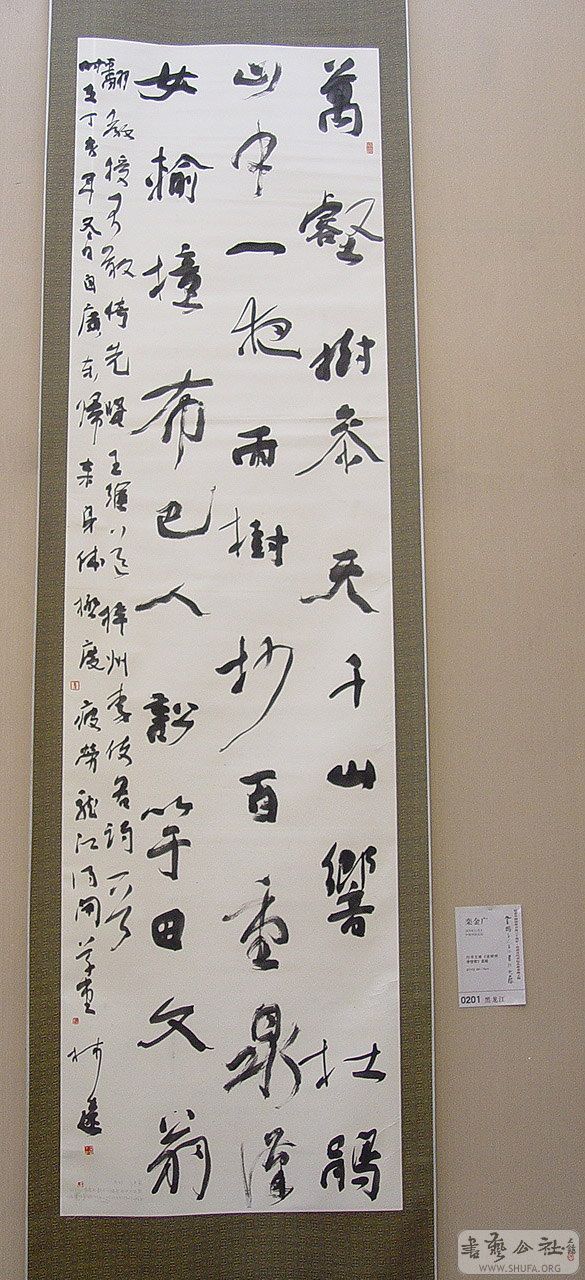 萬壑樹参天千山響杜鵑
山中一夜雨樹杪百重泉漢
女輸橦布巴人訟芋田文翁
翻教授不敢倚先賢王維送梓州李使君詩一首
時在丁亥年冬日自廣東歸來身体極度疲勞龍江得閒草堂
栾金广
0201 黑龙江
書藝公社
WWW.SHUFA.ORG